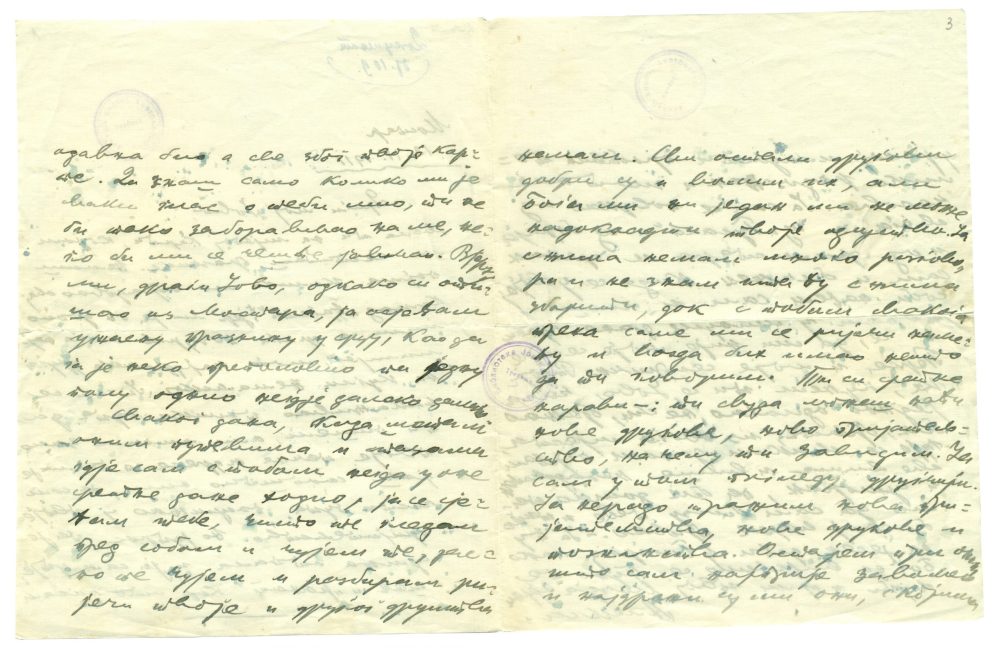 3
одавна био а све због твоје кар-
те. Да знаш само колико ми је
сваки глас о теби мио, ти не
би тако заборављао на ме, не-
го би ми се чешће јављао. Вјеруј
ми, драги Јово, однако си оти-
шао из Мостара, ја осјећам
у празнину у срцу, као да
га је неко преполовио па једну
полу однио негдје далеко
Сваког дана, када
оним путевима и стазама
гдје сам с тобом негда у оне
сретне дане ходио, ја се сје-
ћам тебе, чисто те гледам
пред собом и чујем те, јас-
но те чујем и разбирам ри-
јечи твоје и другог друштва
немам. Ови остали другови
добри су и волим их, али
богами ни један ми не може
надокнадити твоје одсуство. Ја
с њима немам много разгово-
ра и не знам шта ћу с њима
зборити, док с тобом свакога
саме ми се ријечи
и вазда бих имао нешто
да ти говорим. Ти си сретне
нарави -: ти свуда можеш наћи
нове другове, ново пријатељ-
ство, на чему ти завидим. Ја
сам у том погледу друкчији.
Ја нерадо тражим нова при-
јатељства, нове другове и
познанства. Остајем при оном
што сам најприје заволио
и најдражи су ми они, с којима